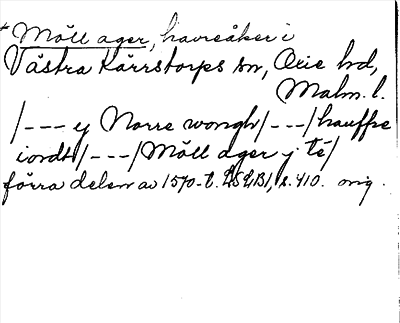 * Möll ager, havreåker i
Västra Kärrstorps sn, Oxie hd,
Malm. l.
/--- y Norre wongh/---/hauffre
iordt/---/Möll ager j té/
förra delen av 1570-t. LSLB1, s. 410. orig.